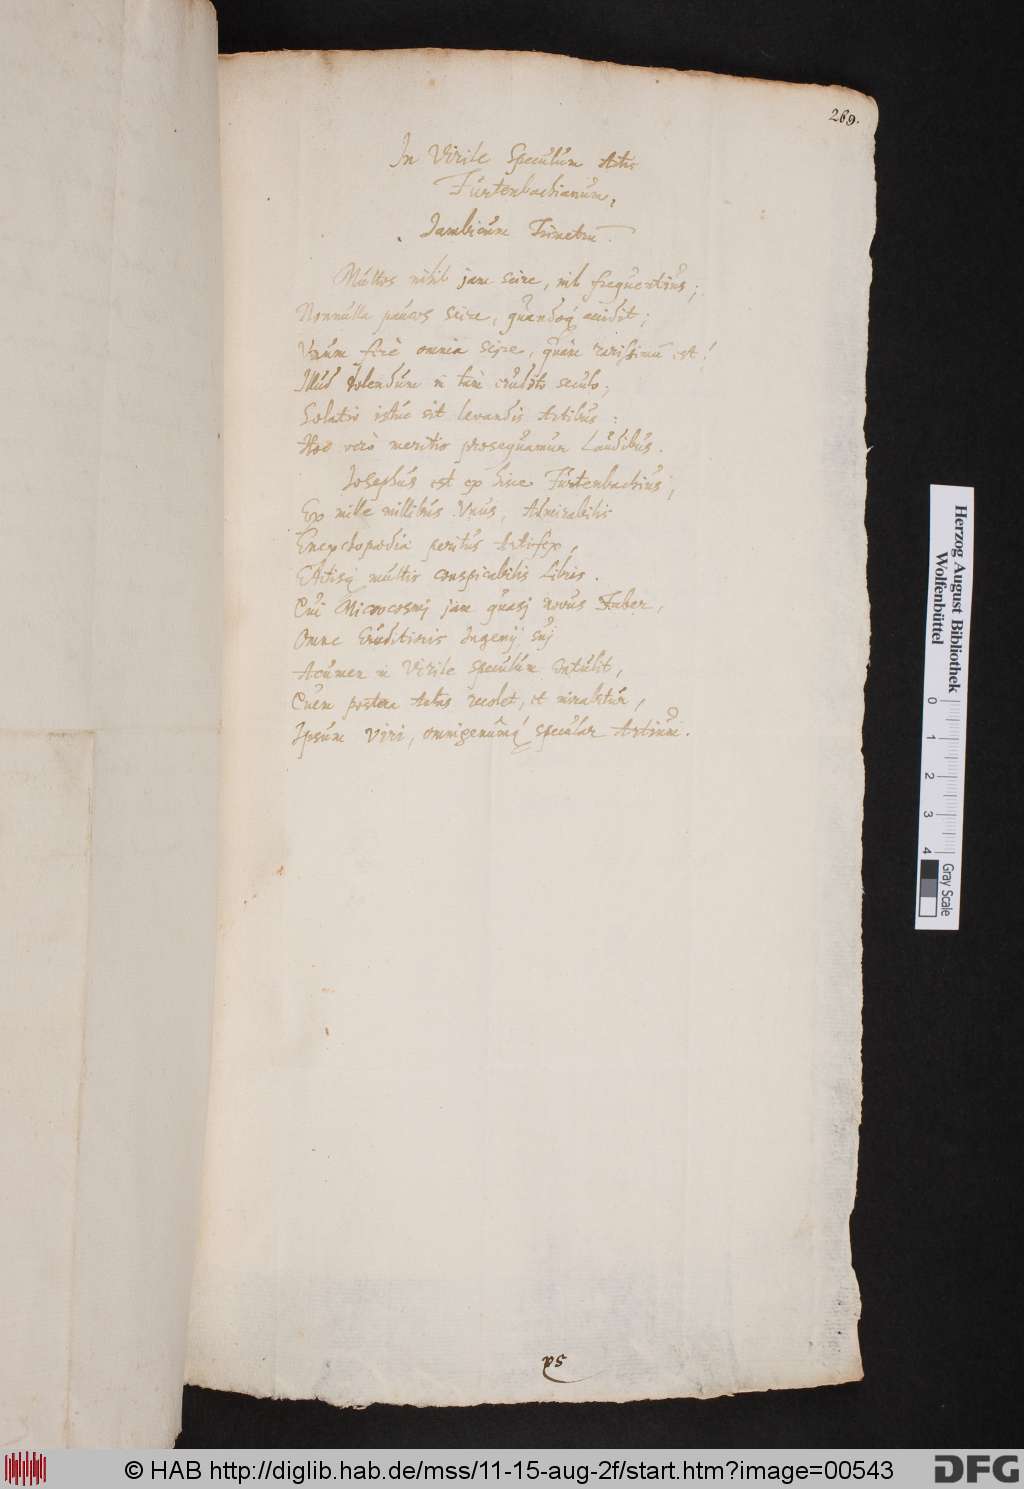 269.
In Virile Speculum Artis
Fürtenbachianum,
Iambicum Trimetrũ.
Multos nihil jam scire, nil frequentius;
Nonnulla paucos scire, quandoq́ accidit;
Vnum ferè omnia scire, quàm rarissimũ est!
Illud dolendum in tàm erudito seculo;
Solatio istuc sit levandis Artibus:
Hoc verò meritis prosequamur Laudibus.
Iosephus est ex hisce Fürtenbachius;
Ex mille millibus Vnus, Admirabilis
Encyclopædiæ peritus Artifex,
Editisq́ multis conspicabilis Libris.
Cui Microcosmj jam quasj novus Faber,
Omne Eruditionis Ingenij suj
Acumen in Virile speculum intulit,
Quem postera Aetas recolet, et mirabitur,
Ipsum Viri, omnigenûmq́ specular Artium.
ps
Herzog August Bibliothek
Wolfenbüttel
0 1 2 3 4
Gray Scale
© HAB http://diglib.hab.de/mss/11-15-aug-2f/start.htm?image=00543
DFG